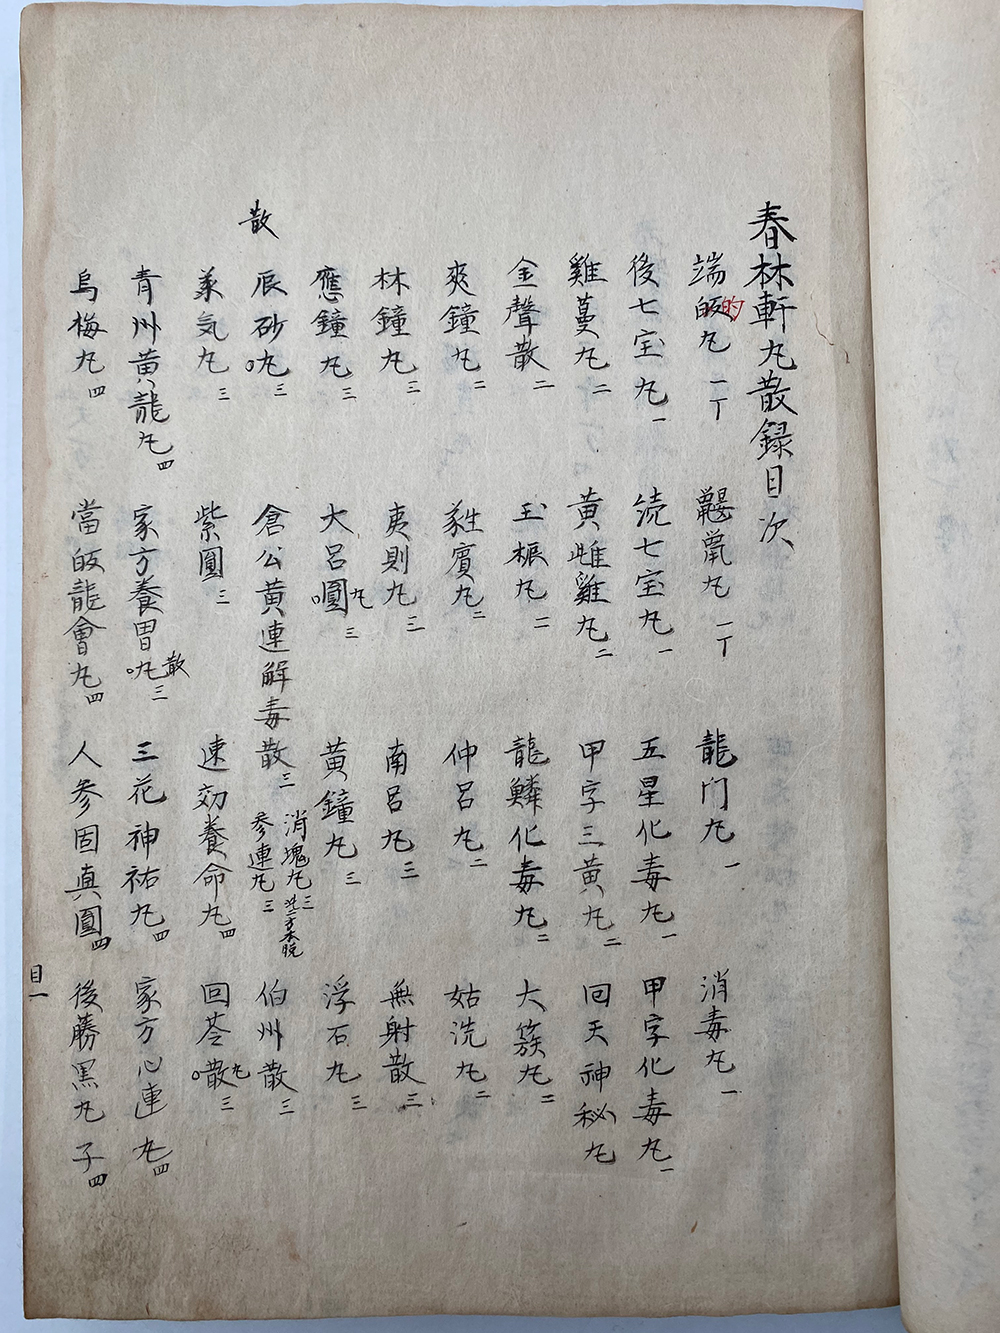 春林軒丸散録目次
端的皈丸 一丁 鼴鼠丸 一丁 龍門丸 一 消毒丸 一
後七宝丸 一 続七宝丸 一 五星化毒丸 一 甲字化毒丸 一
雞蔓丸 二 黄雌雞丸 二 甲字三黄丸 二 回天神秘丸
金聲散 二 玉振丸 二 龍鱗化毒丸 二 大簇丸 二
夾鐘丸 二 蕤賓丸 二 仲呂丸 二 姑洗丸 二
林鐘丸 三 夷則丸 三 南呂丸 三 無射散 三
應鐘丸 三 大呂圓丸 三 黄鐘丸 三 浮石丸 三
散
辰砂丸 三 倉公黄連解毒散 三 消塊丸 三 参連丸 三 伯州散 三
気丸 三 紫圓 三 速効養命丸 四 回苓散丸 三
青州黄龍丸 四 家方養胃丸散 三 三花神祐丸 四 家方心連丸 四
烏梅丸 四 當皈龍會丸 四 人参固真圓 四 後勝黒丸子 四
目一